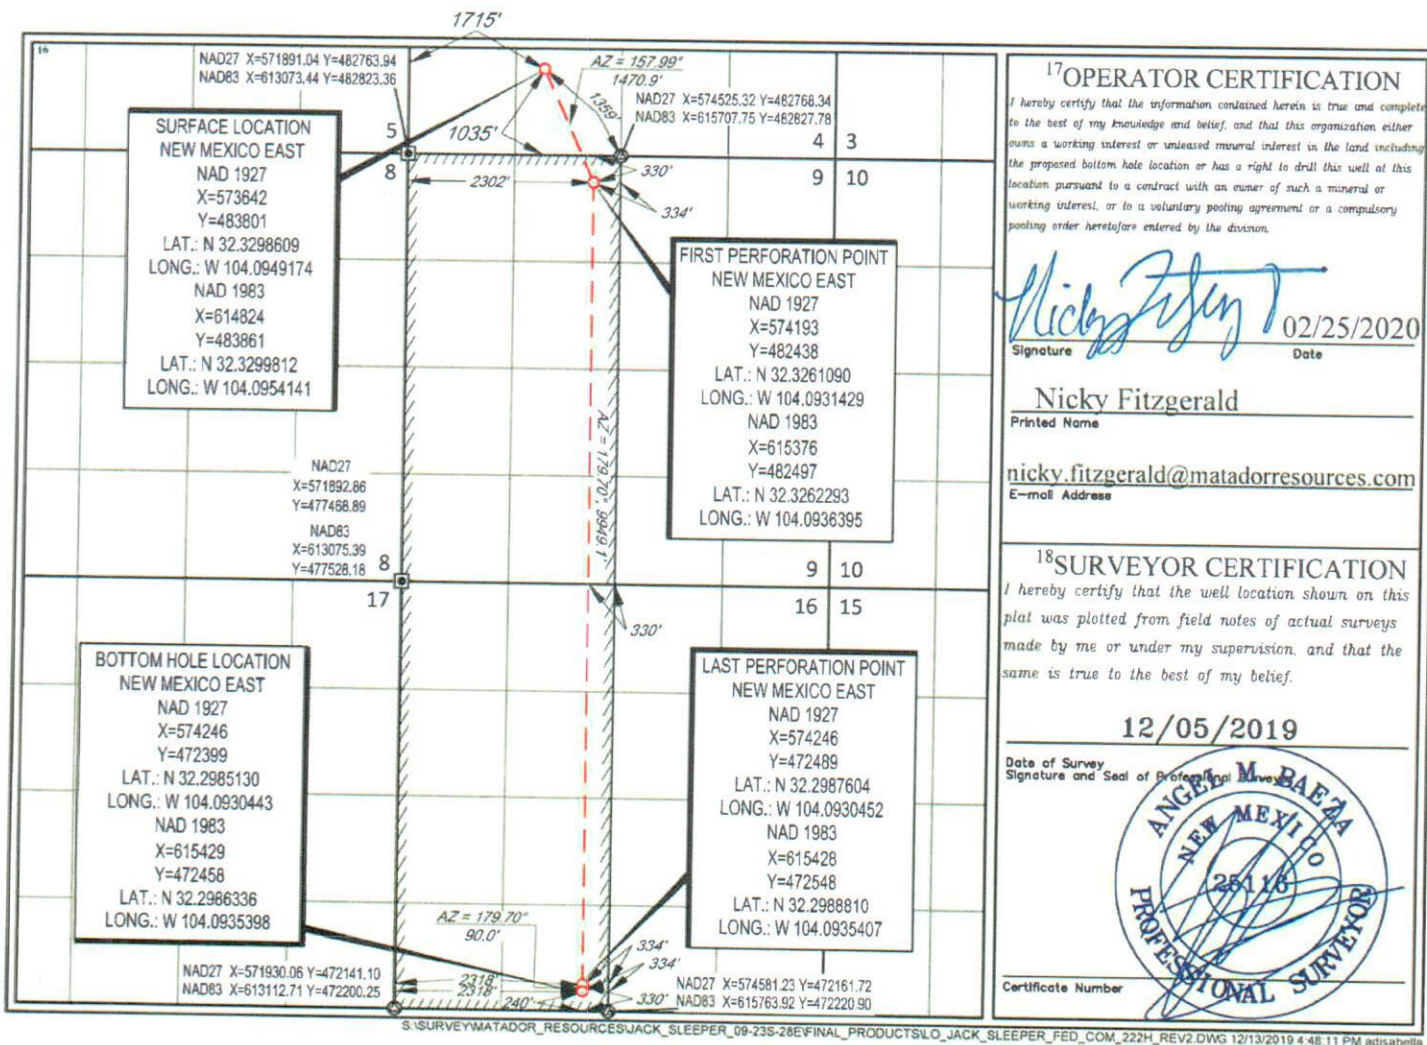 16
1715'
NAD27 X=571891.04 Y=482763.94
NAD83 X=613073.44 Y=482823.36
AZ = 157.99°
1470.9'
1359'
1035'
NAD27 X=574525.32 Y=482768.34
NAD83 X=615707.75 Y=482827.78
5
8
4 3
9 10
2302'
330'
334'
SURFACE LOCATION
NEW MEXICO EAST
NAD 1927
X=573642
Y=483801
LAT.: N 32.3298609
LONG.: W 104.0949174
NAD 1983
X=614824
Y=483861
LAT.: N 32.3299812
LONG.: W 104.0954141
FIRST PERFORATION POINT
NEW MEXICO EAST
NAD 1927
X=574193
Y=482438
LAT.: N 32.3261090
LONG.: W 104.0931429
NAD 1983
X=615376
Y=482497
LAT.: N 32.3262293
LONG.: W 104.0936395
AZ = 179.70°, 9949.1'
NAD27
X=571892.86
Y=477468.89
NAD83
X=613075.39
Y=477528.18
8
17
9 10
16 15
330'
BOTTOM HOLE LOCATION
NEW MEXICO EAST
NAD 1927
X=574246
Y=472399
LAT.: N 32.2985130
LONG.: W 104.0930443
NAD 1983
X=615429
Y=472458
LAT.: N 32.2986336
LONG.: W 104.0935398
LAST PERFORATION POINT
NEW MEXICO EAST
NAD 1927
X=574246
Y=472489
LAT.: N 32.2987604
LONG.: W 104.0930452
NAD 1983
X=615428
Y=472548
LAT.: N 32.2988810
LONG.: W 104.0935407
AZ = 179.70°
90.0'
334'
334'
NAD27 X=571930.06 Y=472141.10
NAD83 X=613112.71 Y=472200.25
2318'
2318'
240'
330'
NAD27 X=574581.23 Y=472161.72
NAD83 X=615763.92 Y=472220.90
17 OPERATOR CERTIFICATION
I hereby certify that the information contained herein is true and complete
to the best of my knowledge and belief, and that this organization either
owns a working interest or unleased mineral interest in the land including
the proposed bottom hole location or has a right to drill this well at this
location pursuant to a contract with an owner of such a mineral or
working interest, or to a voluntary pooling agreement or a compulsory
pooling order heretofore entered by the division.
02/25/2020
Signature Date
Nicky Fitzgerald
Printed Name
nicky.fitzgerald@matadorresources.com
E-mail Address
18 SURVEYOR CERTIFICATION
I hereby certify that the well location shown on this
plat was plotted from field notes of actual surveys
made by me or under my supervision, and that the
same is true to the best of my belief.
12/05/2019
Date of Survey
Signature and Seal of Professional Surveyor
ANGEL M. BAEZA
NEW MEXICO
25116
PROFESSIONAL SURVEYOR
Certificate Number
S:\SURVEY\MATADOR_RESOURCES\JACK_SLEEPER_09-23S-28E\FINAL_PRODUCTS\LO_JACK_SLEEPER_FED_COM_222H_REV2.DWG 12/13/2019 4:48:11 PM adisabella